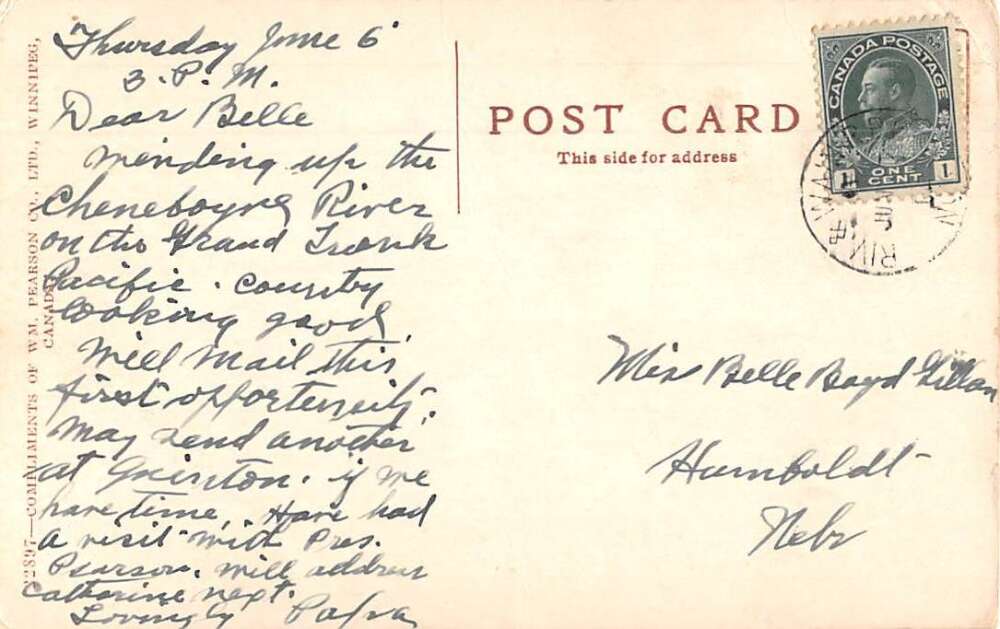 Thursday June 6
3. P. M.
Dear Belle
Winding up the
Cheneboyne River
on the Grand Trunk
Pacific. Country
looking good
Will mail this
first opportunity.
May send another
at if we
have time. Have had
a visit with Pres.
Pearson. Will address
Catharine next.
Lovingly Papa
22897—COMPLIMENTS OF WM. PEARSON CO., LTD., WINNIPEG,
CANADA
POST CARD
This side for address
CANADA POSTAGE
1 ONE CENT 1
RIV
Miss Belle Boyd Gillan
Humboldt
Nebr